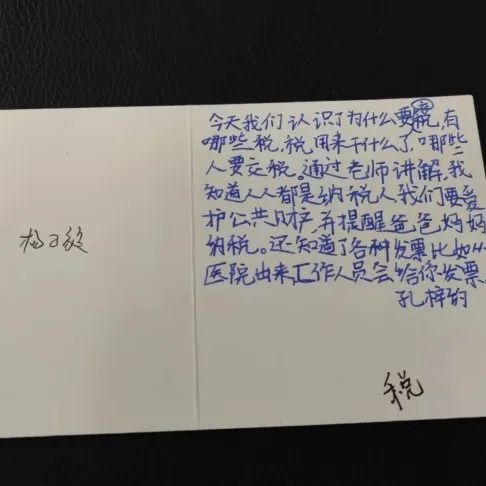 今天我们认识了为什么要税,有
哪些税,税用来干什么了,哪些
人要交税。通过老师讲解,我
知道人人都是纳税人我们要爱
护公共,并提醒爸爸妈妈
纳税。还知道了各种发票比如从
医院出来,工作人员会给你发票。
孔梓昀
税